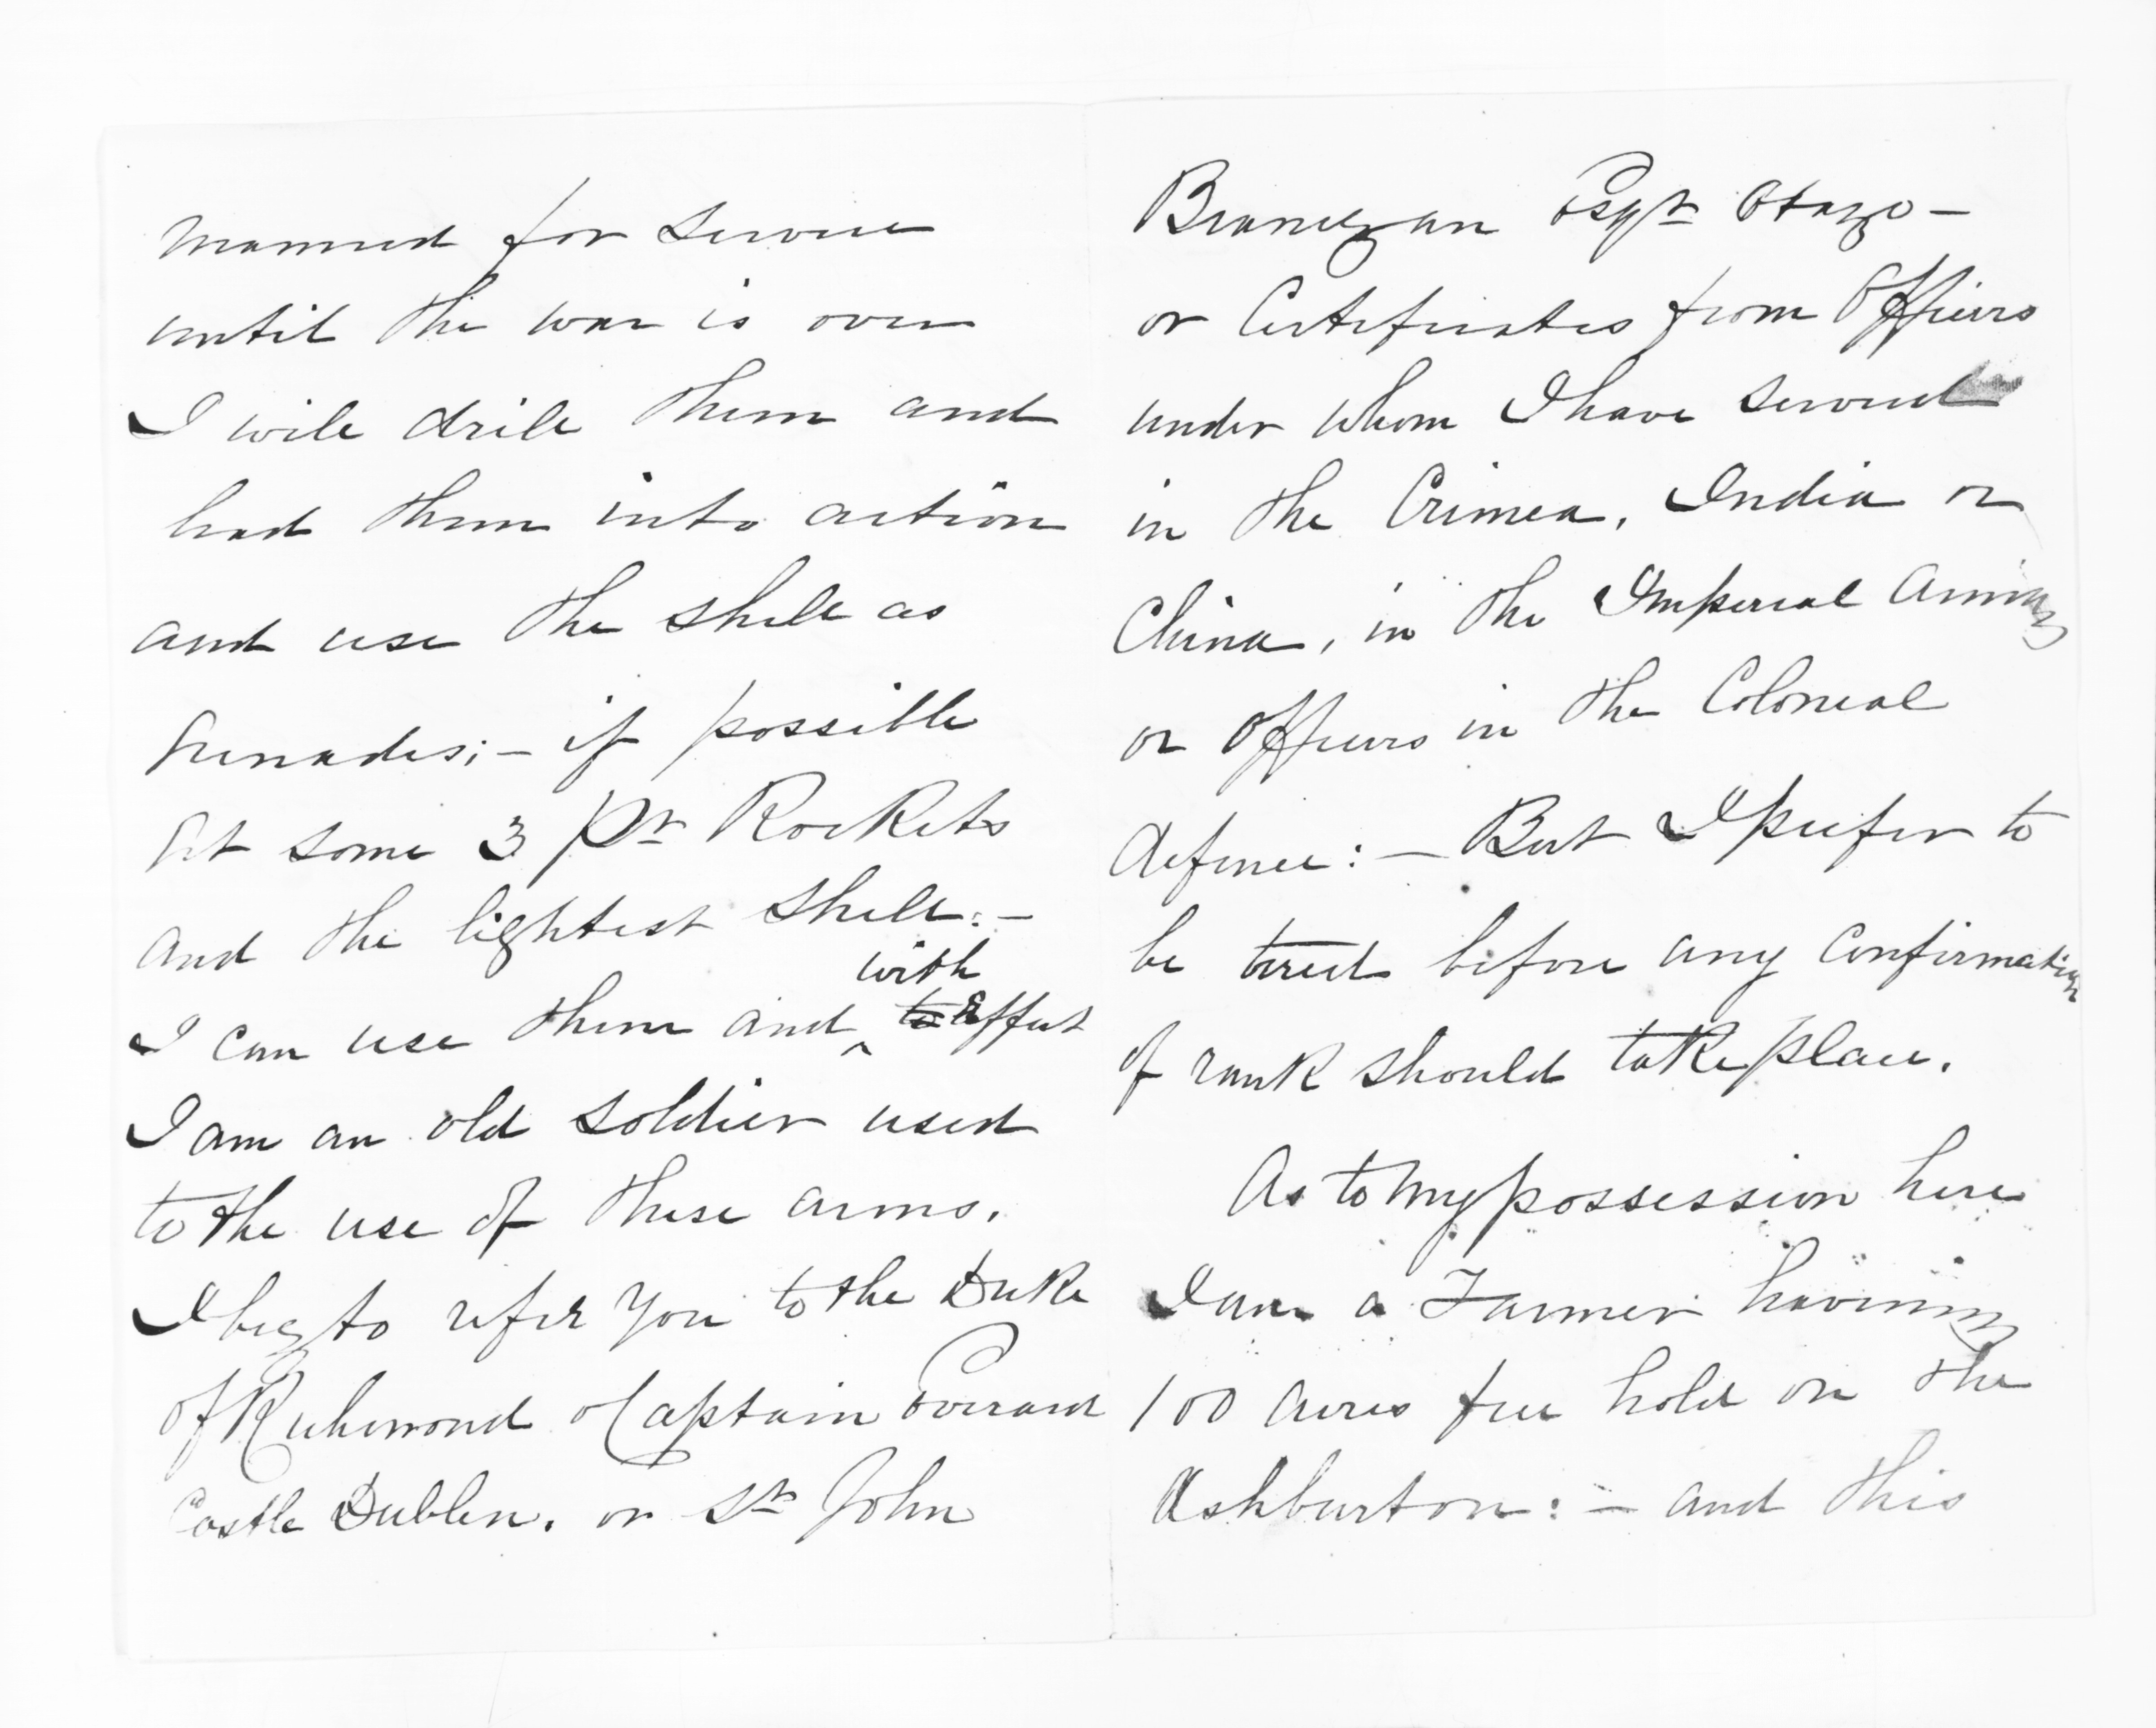 manned for service
until the war is over
I will drill them and
lead them into action
and use the shell as
Grenades;- if possible
Get some 3 Pr Rockets
and the lightest shell:-
I can use them and with to effect
I am an old soldier used
to the use of these arms.
I beg to refer you to the Duke
of Richmond or Captain
Castle Dublin. or St John
Branigan Esqr Otago-
or Certificates from Officers
under whom I have served
in the Crimea, India or
China, in the Imperial Army
or Officers in the Colonial
defence:- But I prefer to
be tried before any confirmation
of rank should take place.
As to my possession here
I am a Farmer having
100 acres free hold on the
Ashburton:- and this